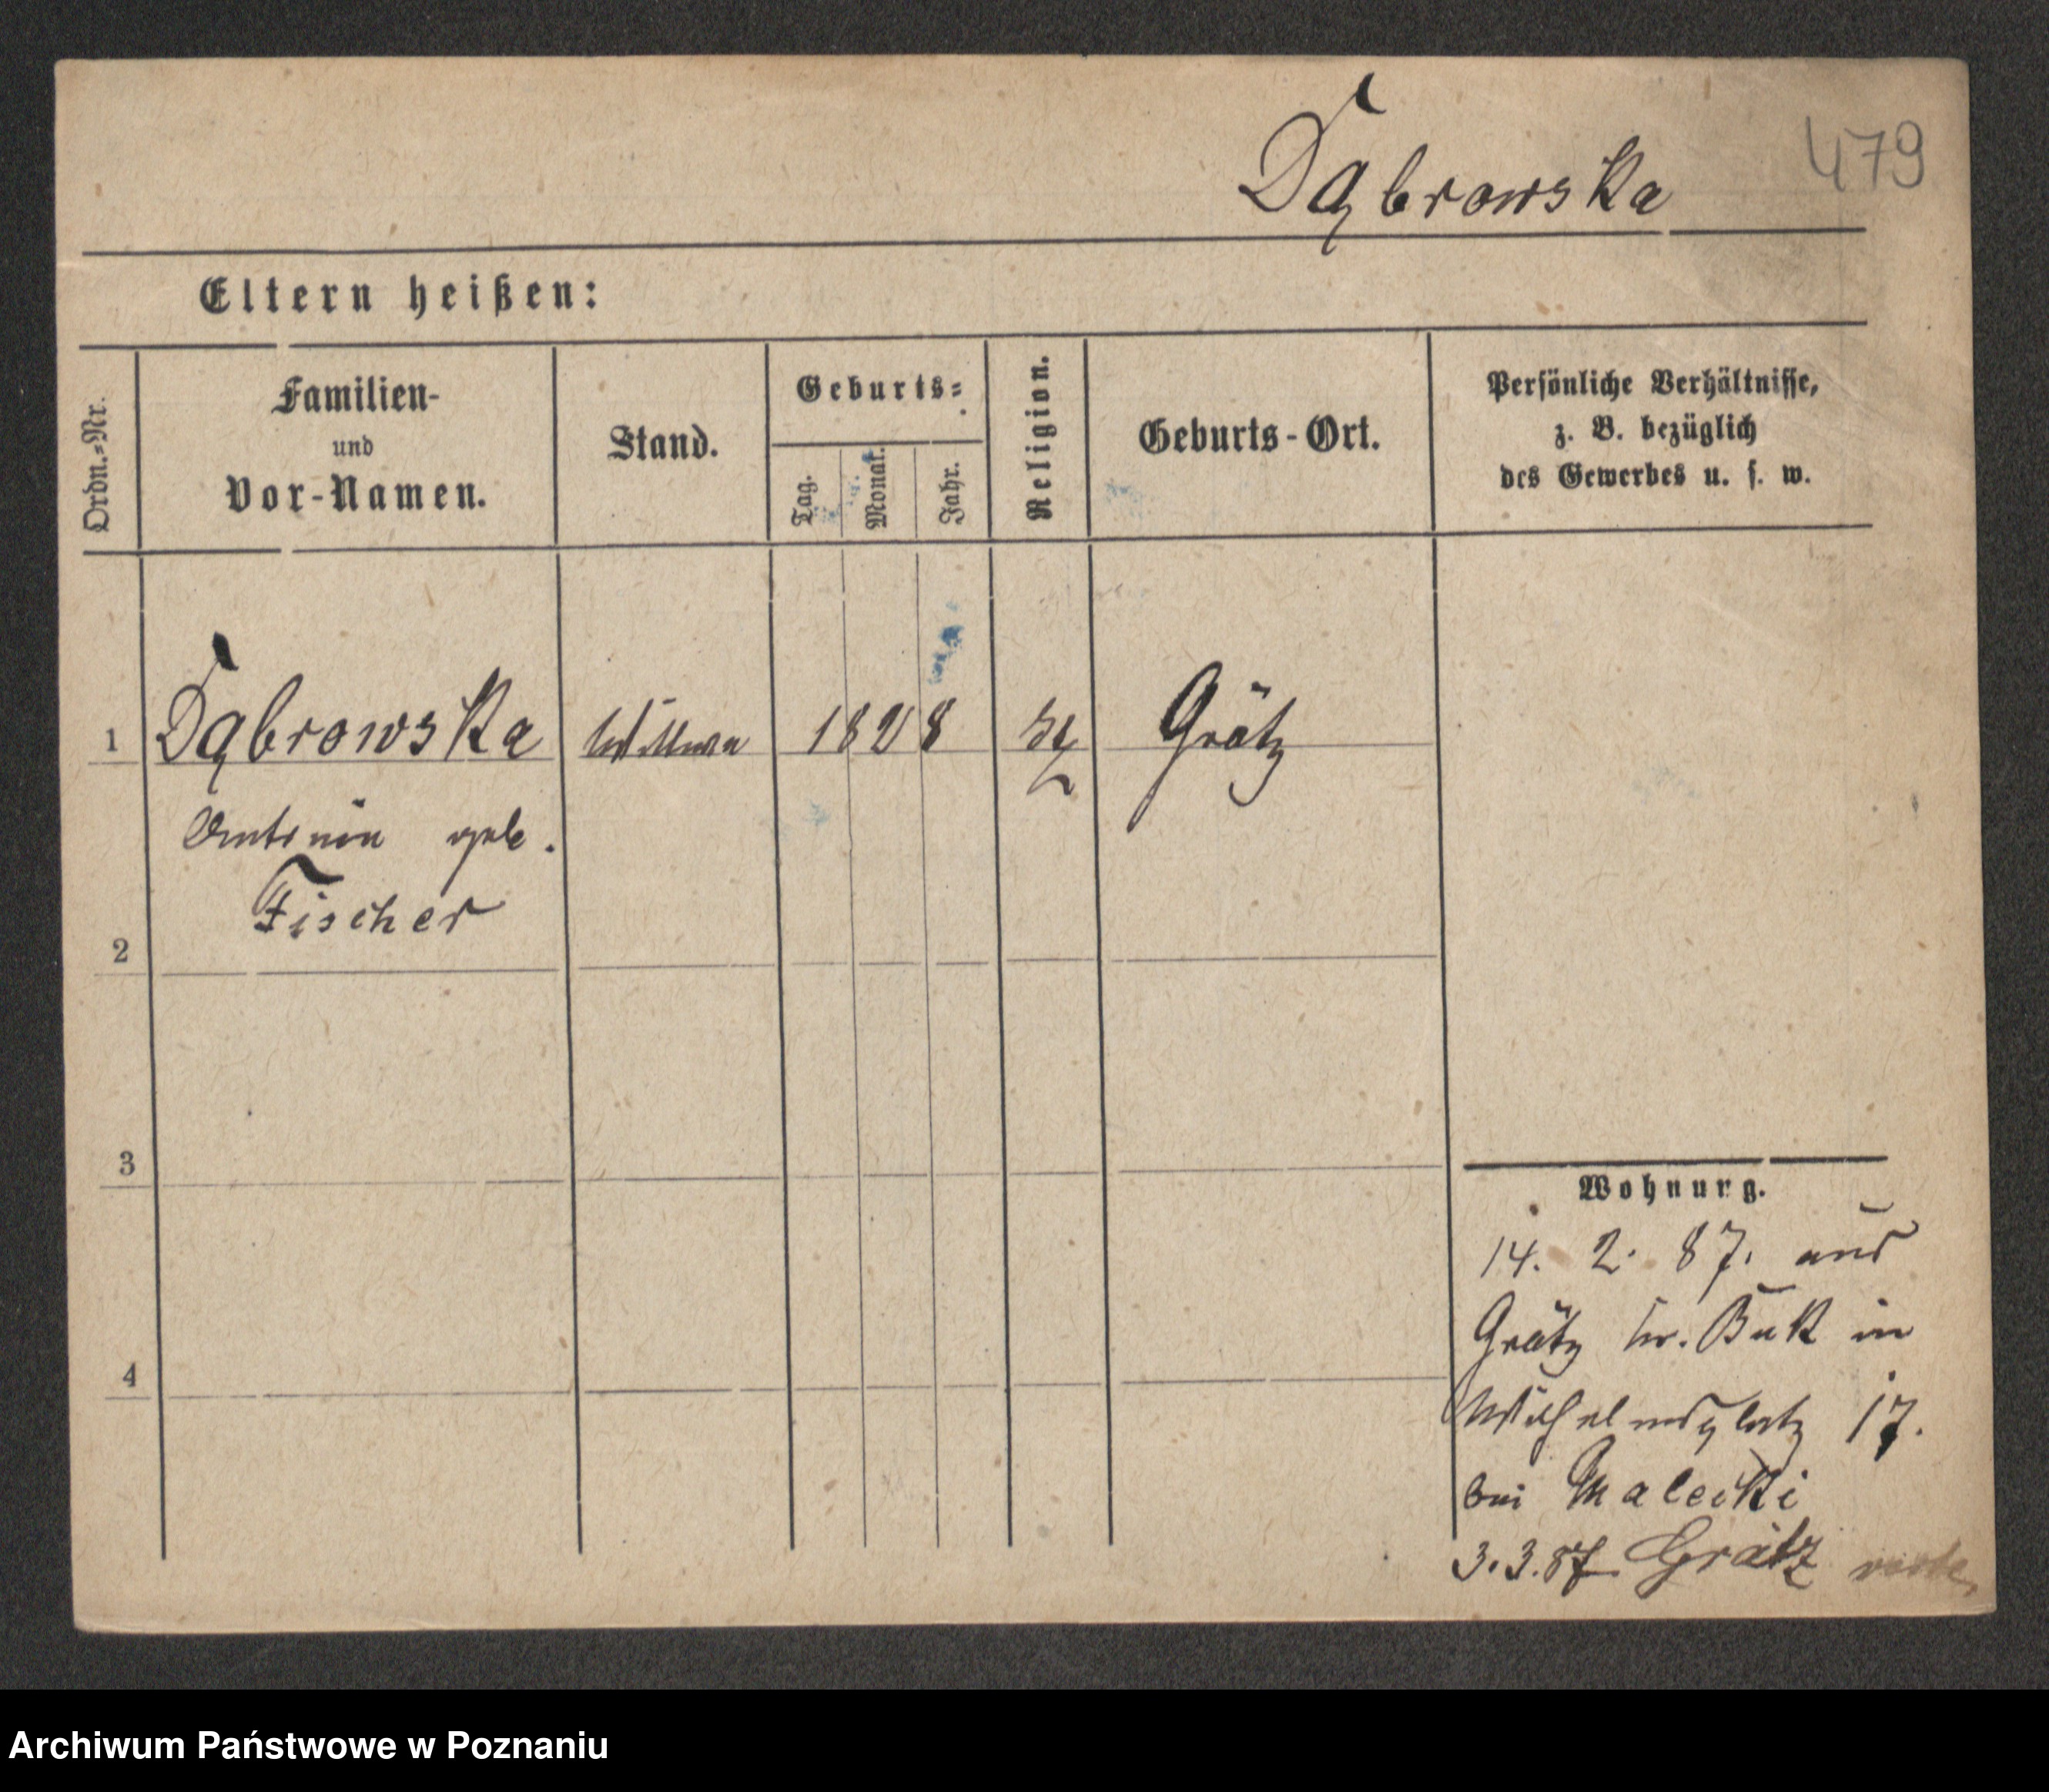 Dąbrowska
479
Eltern heißen:
Ordn.=Nr.
Familien-
und
Vor-Namen.
Stand.
Geburts=
Tag.
Monat.
Jahr.
Religion.
Geburts-Ort.
Persönliche Verhältnisse,
z. B. bezüglich
des Gewerbes u. s. w.
1 Dąbrowska Wittwe 1828 Grätz
geb.
Fischer
2
3
4
Wohnung.
14. 2. 87. aus
Grätz Kr. Buk in
Wilhelmsplatz 17.
bei Malecki
3.3.87 Grätz
Archiwum Państwowe w Poznaniu